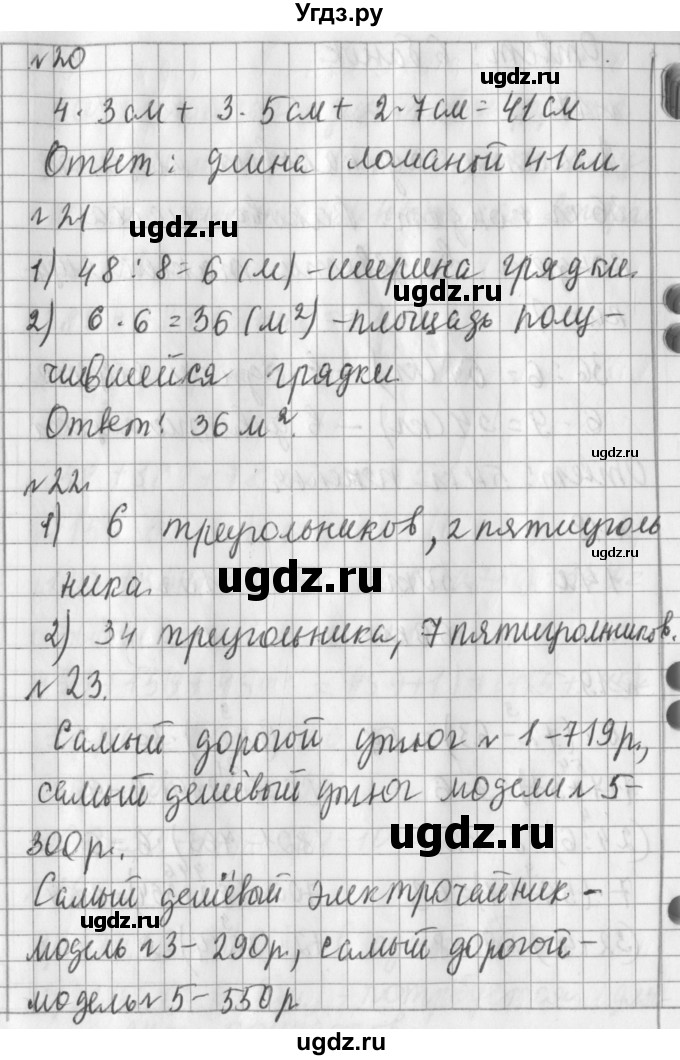 Угдз.ру
№20
4·3см + 3·5см + 2·7см = 41см
ugdz.ru
Ответ: длина ломаной 41см
№21
ugdz.ru
1) 48:8=6 (м) - ширина грядки.
ugdz.ru
2) 6·6=36 (м²) - площадь полу-
чившейся грядки
Ответ: 36 м².
ugdz.ru
№22.
1) 6 треугольников, 2 пятиуголь
ugdz.ru
ugdz.ru
ника.
2) 34 треугольника, 7 пятиугольников.
№23.
Самый дорогой утюг №1-719р.,
ugdz.ru
самый дешёвый утюг модели №5-
300р.
ugdz.ru
Самый дешёвый электрочайник -
ugdz.ru
модель №3-290р., самый дорогой -
ugdz.ru
модель №5-550р
ugdz.ru